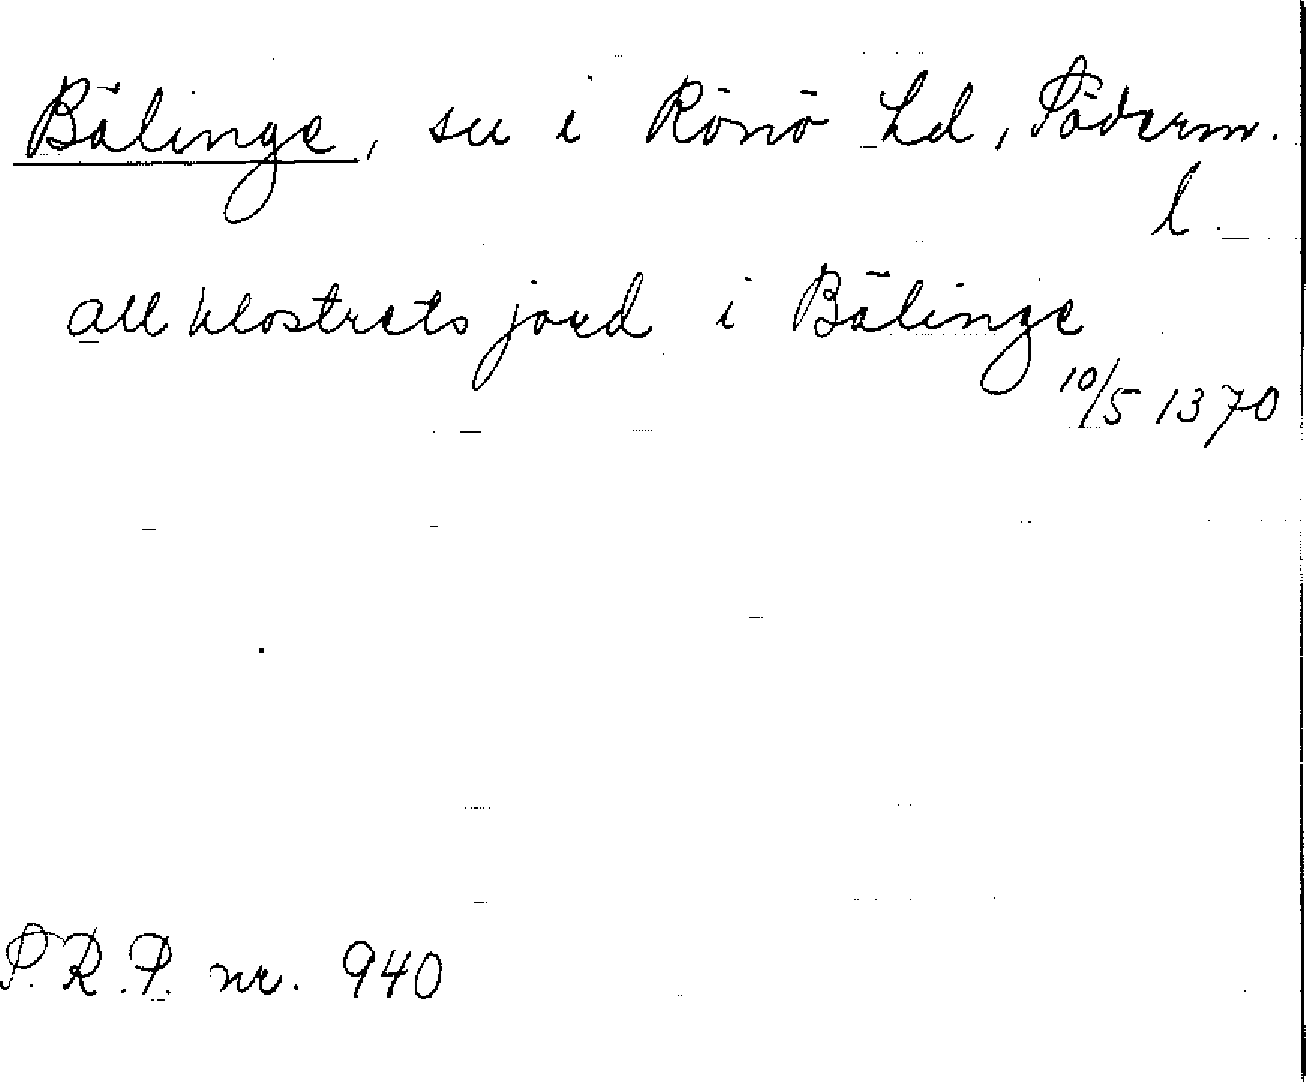 Bälinge, sn i Rönö hd, Söderm.
l.
all klostrets jord i Bälinge
10/5 1370
S.R.P. nr. 940